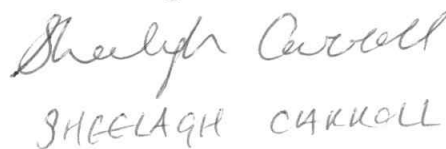 Sheelagh Carroll
SHEELAGH CARROLL